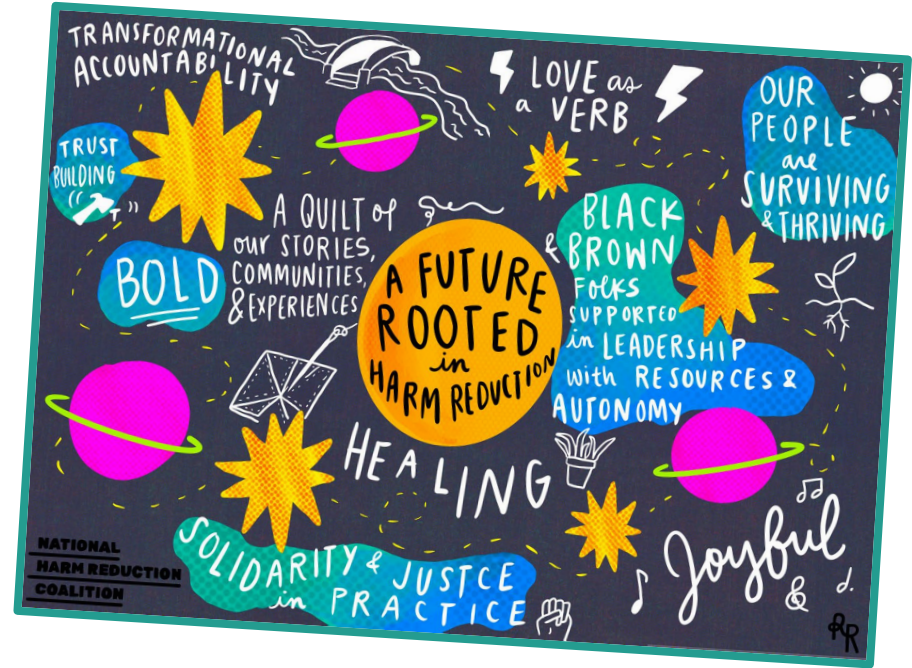 TRANSFORMATIONAL
ACCOUNTABILITY
LOVE as
a VERB
OUR
PEOPLE
are
SURVIVING
& THRIVING
TRUST
BUILDING
A QUILT of
our STORIES,
COMMUNITIES,
& EXPERIENCES
BOLD
A FUTURE
ROOTED
in
HARM REDUCTION
BLACK
& BROWN
FOLKS
SUPPORTED
in LEADERSHIP
with RESOURCES &
AUTONOMY
HEALING
SOLIDARITY & JUSTCE
in PRACTICE
Joyful
&
NATIONAL
HARM REDUCTION
COALITION
RR